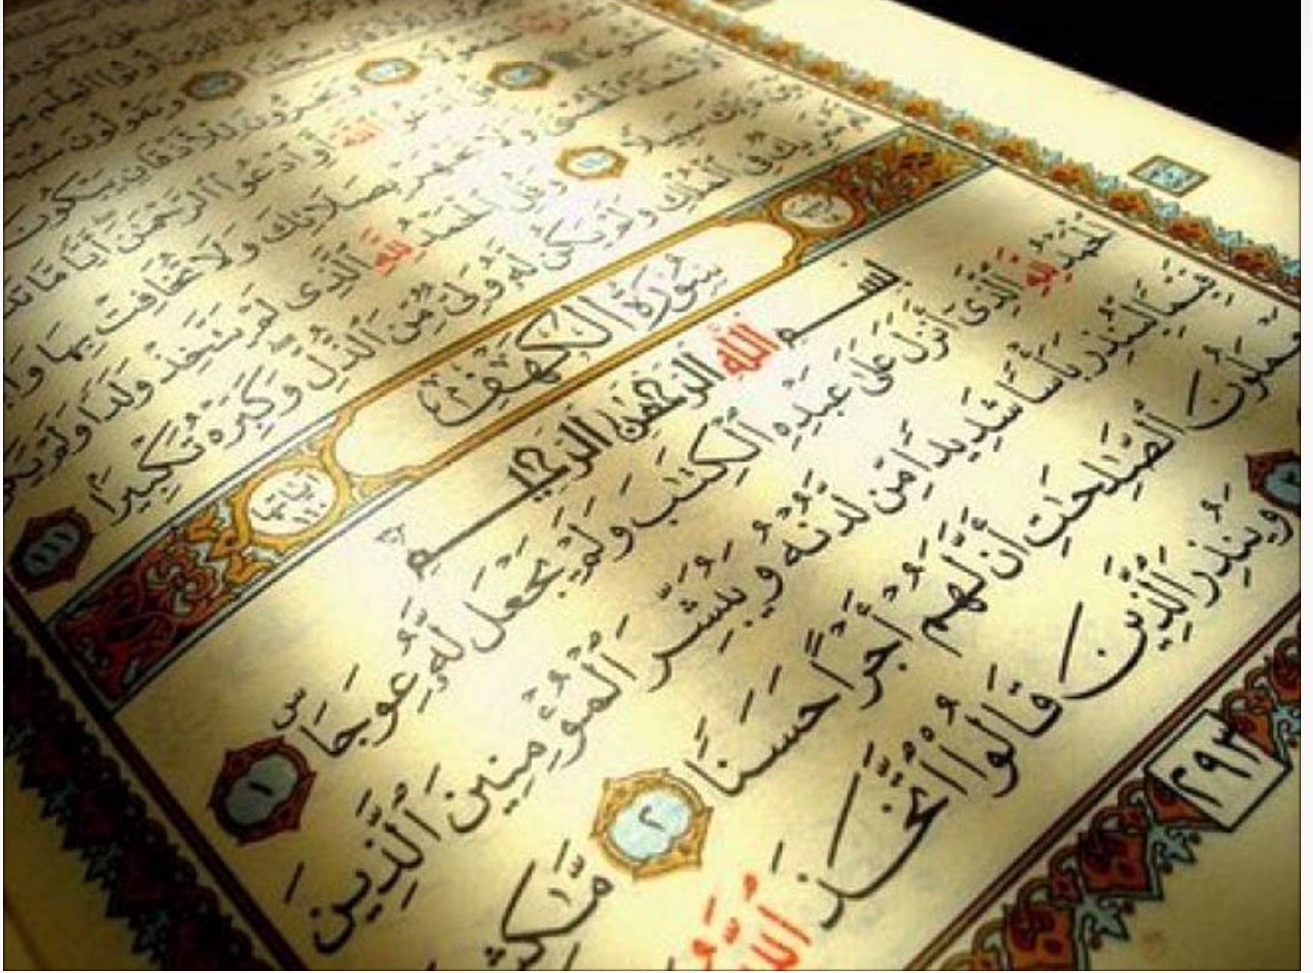 وَيَقُولُونَ
وَيَخِرُّونَ لِلْأَذْقَانِ يَبْكُونَ
ٱللَّهَ أَوِ ٱدْعُوا۟ ٱلرَّحْمَٰنَ أَيًّا مَّا
وَلَا تَجْهَرْ بِصَلَاتِكَ وَلَا تُخَافِتْ بِهَا
سَبِيلًا ١١٠ وَقُلِ ٱلْحَمْدُ لِلَّهِ ٱلَّذِى لَمْ يَتَّخِذْ وَلَدًا وَلَمْ
شَرِيكٌ فِى ٱلْمُلْكِ وَلَمْ يَكُن لَّهُۥ وَلِىٌّ مِّنَ ٱلذُّلِّ وَكَبِّرْهُ تَكْبِيرًۢا ١١١
سُورَةُ الكَهْفِ آيَاتُهَا ١١٠
بِسْمِ اللَّهِ الرَّحْمَٰنِ الرَّحِيمِ
ٱلْحَمْدُ لِلَّهِ ٱلَّذِىٓ أَنزَلَ عَلَىٰ عَبْدِهِ ٱلْكِتَٰبَ وَلَمْ يَجْعَل لَّهُۥ عِوَجَاۜ ١
قَيِّمًا لِّيُنذِرَ بَأْسًا شَدِيدًا مِّن لَّدُنْهُ وَيُبَشِّرَ ٱلْمُؤْمِنِينَ ٱلَّذِينَ
يَعْمَلُونَ ٱلصَّٰلِحَٰتِ أَنَّ لَهُمْ أَجْرًا حَسَنًا ٢ مَّٰكِثِ
٣ وَيُنذِرَ ٱلَّذِينَ قَالُوا۟ ٱتَّخَذَ ٱللَّهُ
٢٩٣